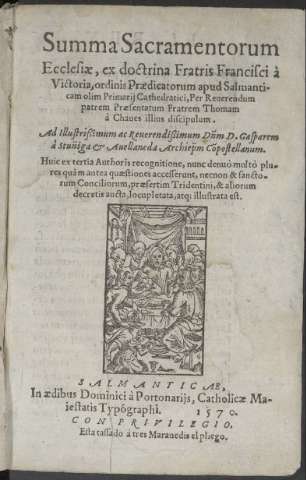 Summa Sacramentorum
Ecclesiæ, ex doctrina Fratris Francisci à
Victoria, ordinis Prædicatorum apud Salmanti-
cam olim Primarij Cathedratici, Per Reuerendum
patrem Præsentatum Fratrem Thomam
à Chaues illius discipulum.
Ad Illustrissimum ac Reuerendissimum Dñm D. Gasparem
à Stuñiga & Auellaneda Archiepm Copostellanum.
Huic ex tertia Authoris recognitione, nunc denuò multò plu-
res quàm antea quæstiones accesserunt, necnon & sancto-
rum Conciliorum, præsertim Tridentini, & aliorum
decretis aucta, locupletata, atq; illustrata est.
SALMANTICAE,
In ædibus Dominici à Portonarijs, Catholicæ Ma-
iestatis Typógraphi. 1570.
CON PRIVILEGIO.
Esta tassado à tres Marauedis el pliego.